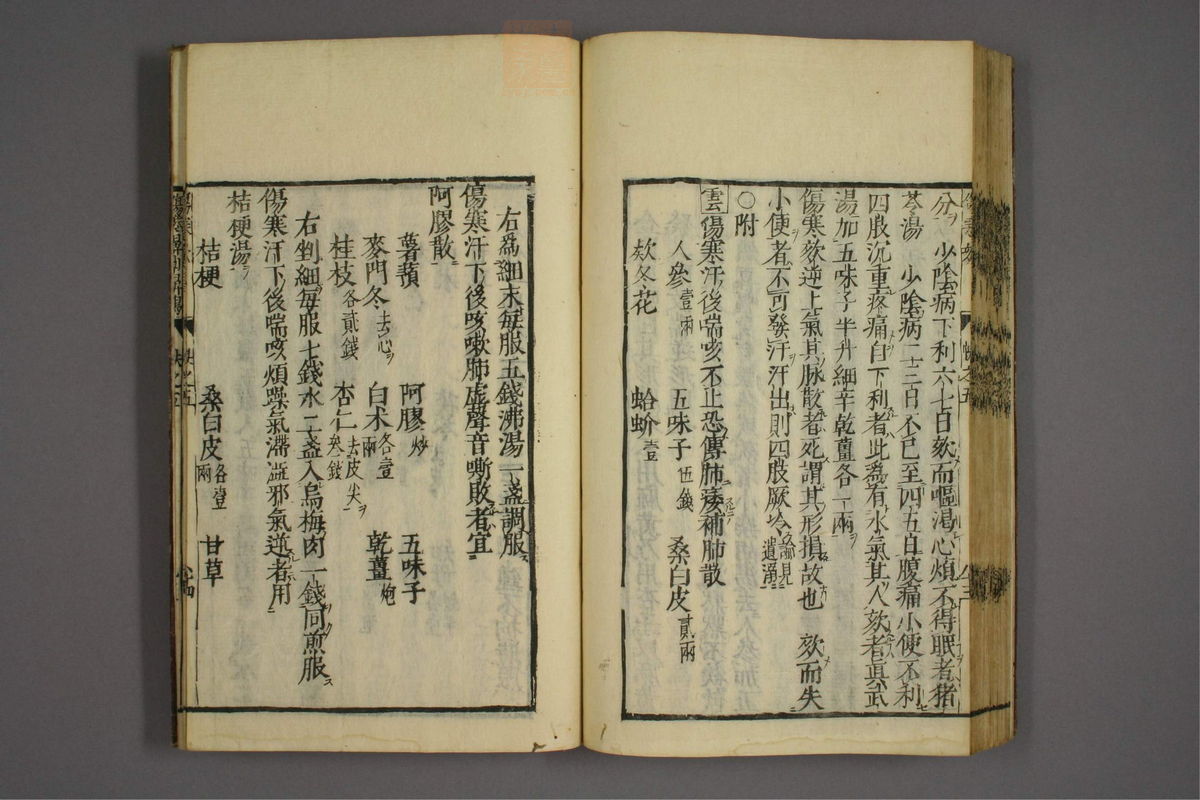 分 少陰病下利六七日欬而嘔渴心煩不得眠者猪
苓湯 少陰病二三日不已至四五日腹痛小便不利
四肢沉重疼痛自下利者此為有水氣其人欬者真武
湯加五味子半升細辛乾薑各一兩
傷寒欬逆上氣其脉散者死謂其形損故也 欬而失
小便者不可發汗汗出則四肢厥冷論見遺溺
○附
雲傷寒汗後喘咳不止恐傳肺痿補肺散
人參壹兩 五味子伍錢 桑白皮貳兩
欬冬花 蛤蚧壹
右為細末每服五錢沸湯一盞調服
傷寒汗下後咳嗽肺虛聲音嘶敗者宜
阿膠散
薯蕷 阿膠炒 五味子
麥門冬去心 白术各壹兩 乾薑炮
桂枝各貳錢 杏仁去皮尖叁錢
右剉細每服七錢水二盞入烏梅肉一錢同煎服
傷寒汗下後喘咳煩躁氣滯澁邪氣逆者用
桔梗湯
桔梗 桑白皮各壹兩 甘草